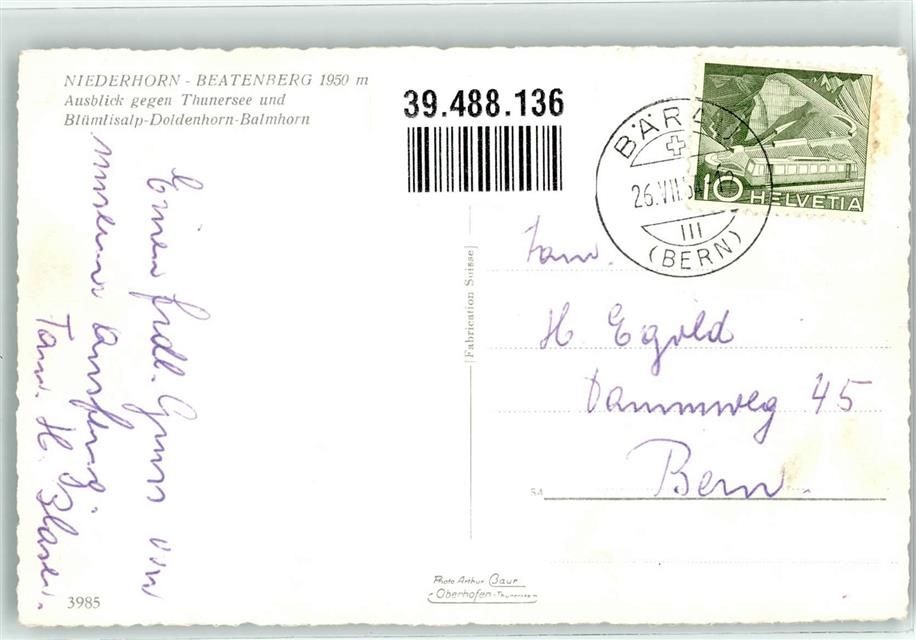 NIEDERHORN - BEATENBERG 1950 m
Ausblick gegen Thunersee und
Blümlisalp-Doldenhorn-Balmhorn
39.488.136
BÄRAU
26.VII.54
III
(BERN)
10 HELVETIA
Einen frdl. Gruss von
unserem Ausflug.
Fam. H. Blaser.
Fabrication Suisse
Fam.
H Egold
Dammweg 45
Bern.
S4
Photo Arthur Baur
Oberhofen-Thunersee
3985